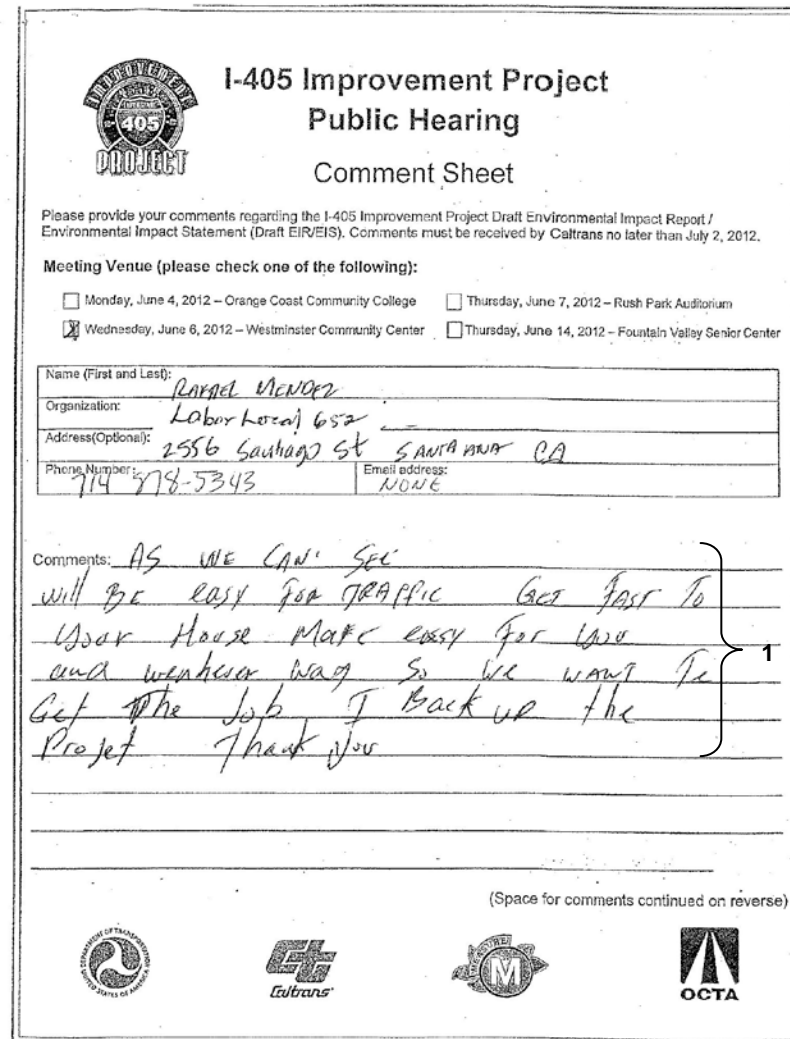 IMPROVEMENT
405
PROJECT
I-405 Improvement Project
Public Hearing
Comment Sheet
Please provide your comments regarding the I-405 Improvement Project Draft Environmental Impact Report /
Environmental Impact Statement (Draft EIR/EIS). Comments must be received by Caltrans no later than July 2, 2012.
Meeting Venue (please check one of the following):
Monday, June 4, 2012 – Orange Coast Community College
Thursday, June 7, 2012 – Rush Park Auditorium
Wednesday, June 6, 2012 – Westminster Community Center
Thursday, June 14, 2012 – Fountain Valley Senior Center
Name (First and Last): RAFAEL MENDEZ
Organization: Labor Local 652
Address(Optional): 2556 Santiago St SANTA ANA CA
Phone Number: 714 -5343
Email address: NONE
Comments: AS WE CAN' SEE
will BE easy FOR TRAFFIC GET FAST To
your House Make easy For you
and way So WE WANT To
Get The Job I Back up the
Projet Thank you
1
(Space for comments continued on reverse)
DEPARTMENT OF TRANSPORTATION
UNITED STATES OF AMERICA
Caltrans
MEASURE
M
OCTA